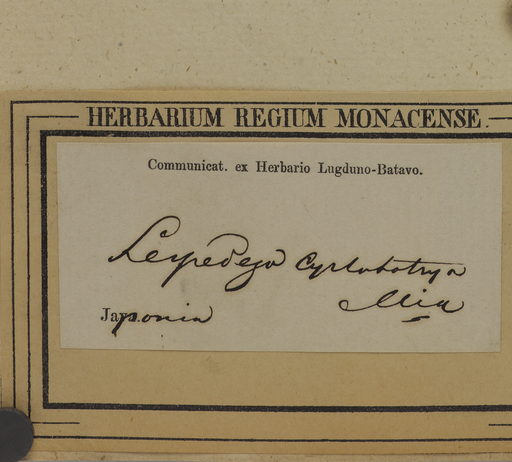 HERBARIUM REGIUM MONACENSE.
Communicat. ex Herbario Lugduno-Batavo.
Lespedeza cyrtobotrya
Miq
Japonia